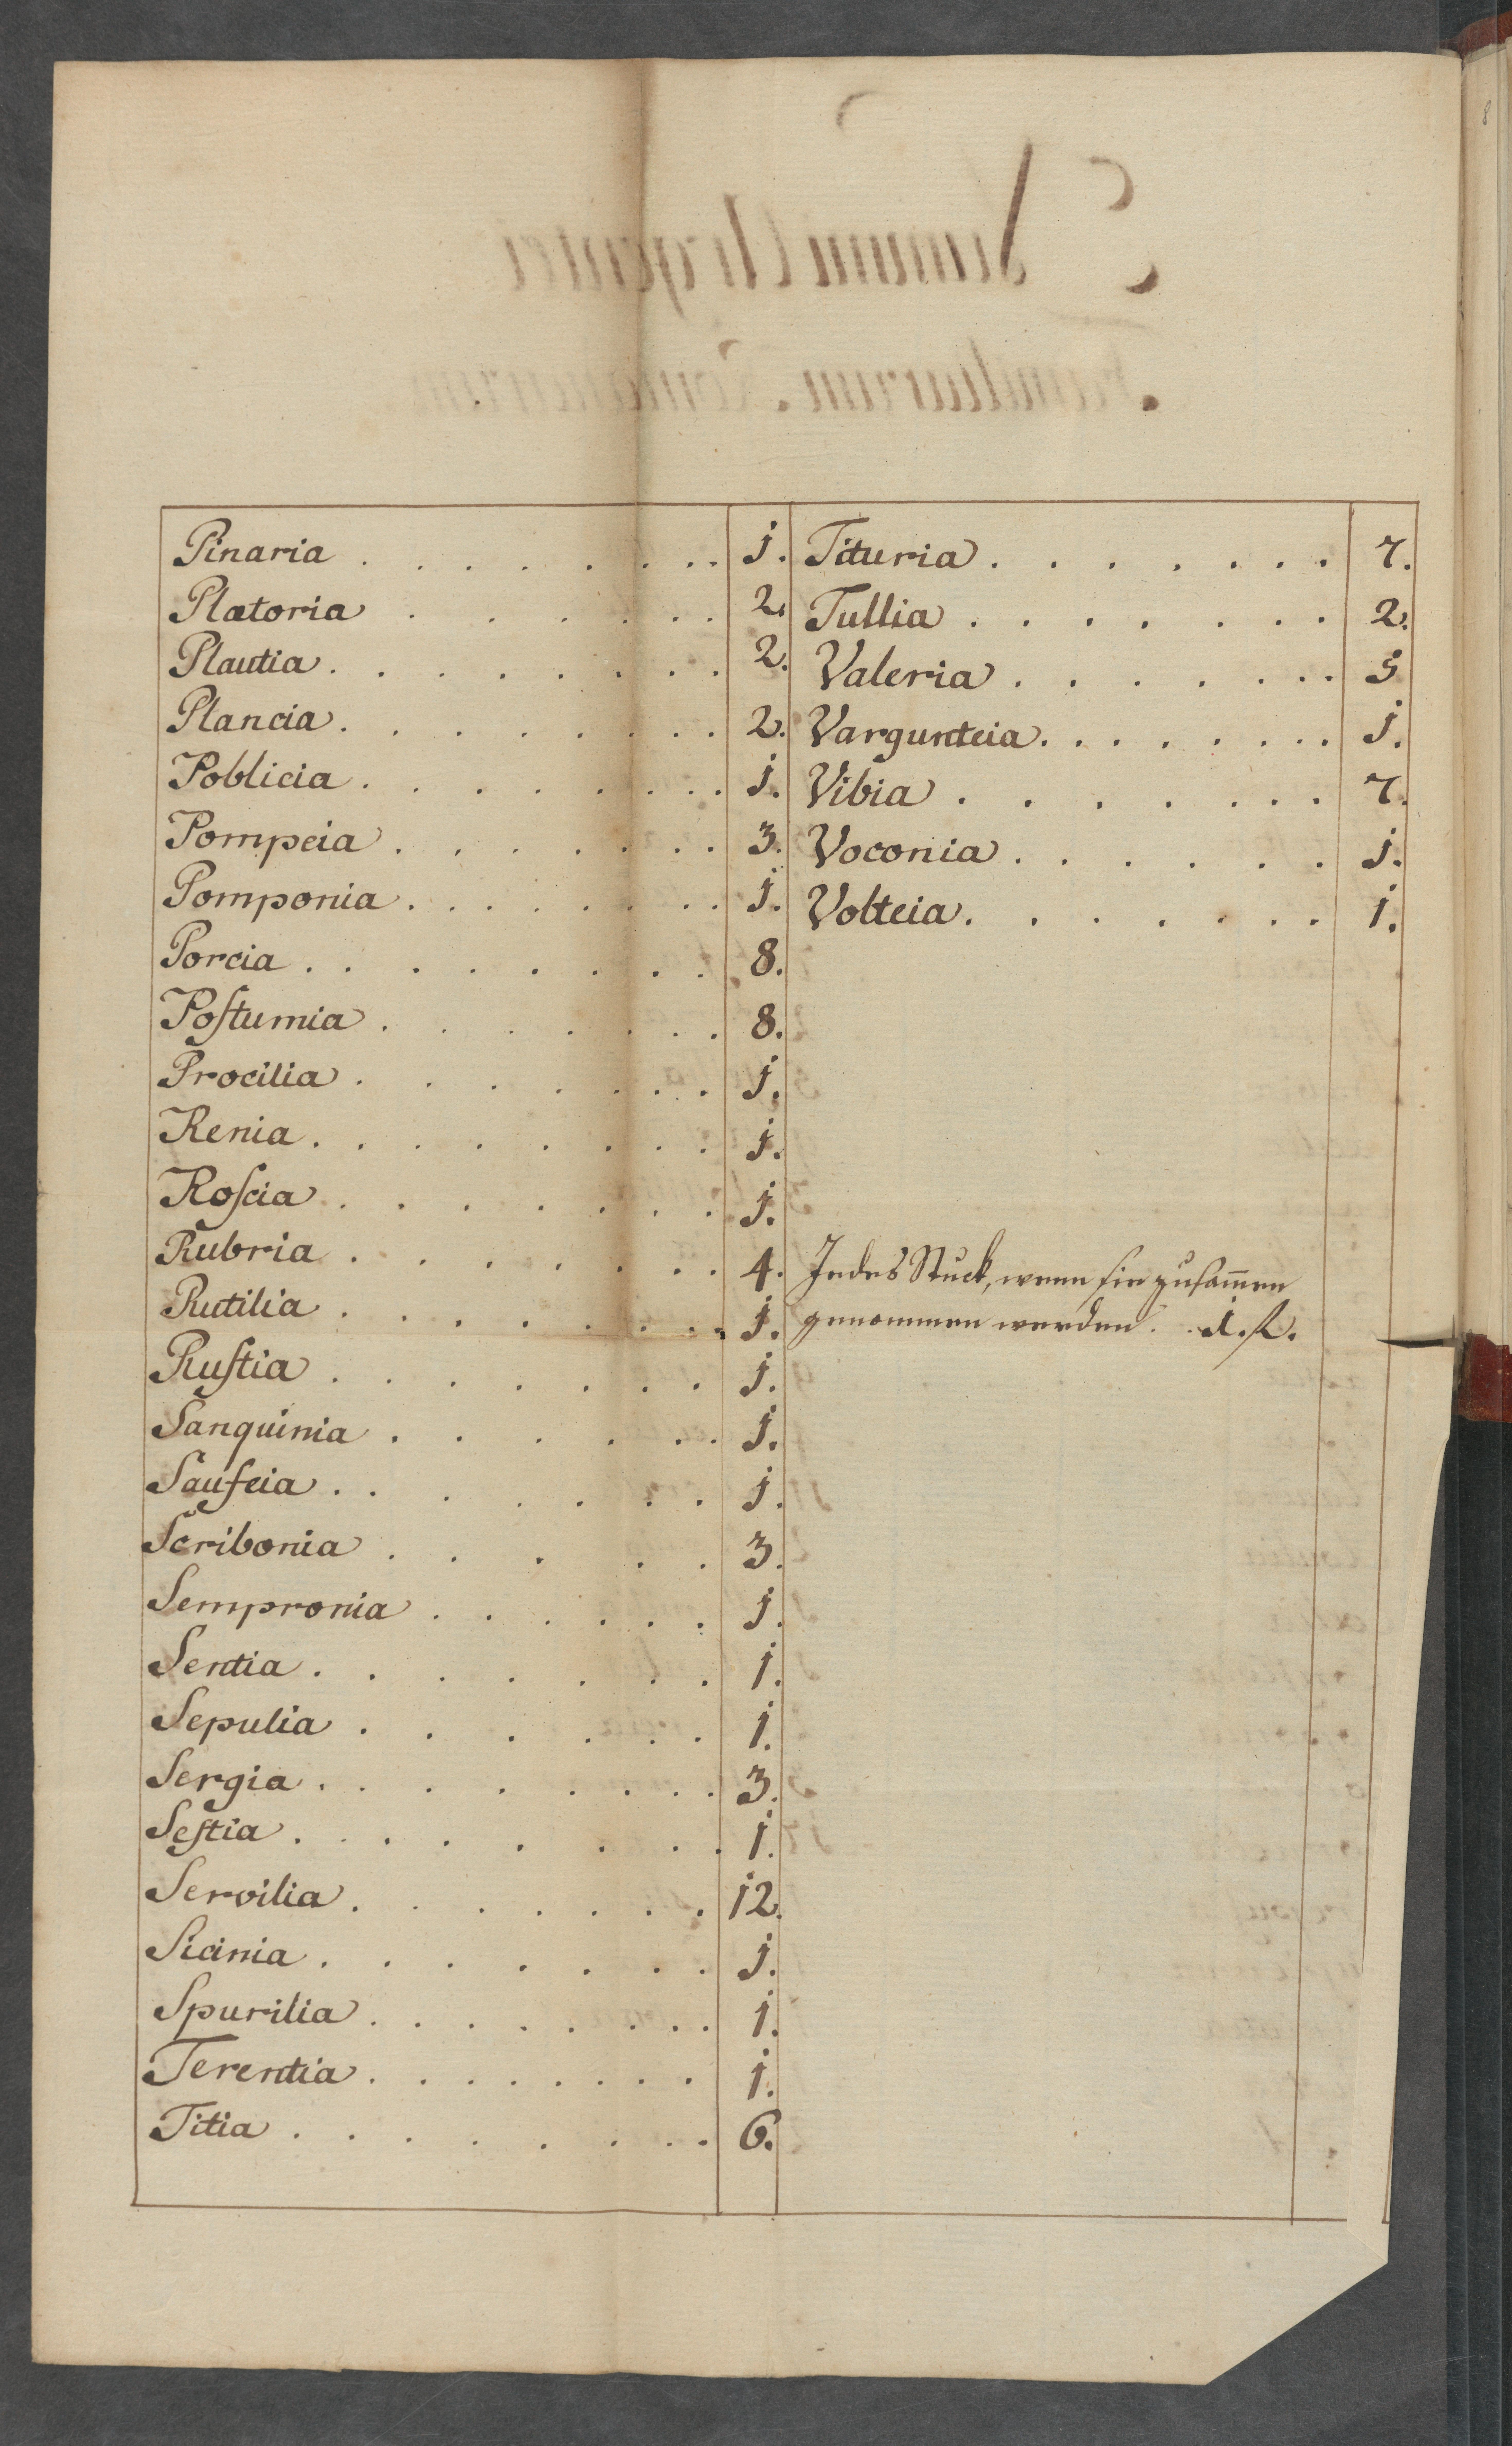 Pinaria . . . . . . . . j.
Plætoria . . . . . . 2.
Plautia . . . . . . . . 2.
Plancia . . . . . . . . 2.
Poblicia . . . . . . . . j.
Pompeia . . . . . . . 3.
Pomponia . . . . . . . j.
Porcia . . . . . . . . 8.
Poſtumia . . . . . . . 8.
Procilia . . . . . . . j.
Renia . . . . . . . . j.
Roſcia . . . . . . . j.
Rubria . . . . . . . 4.
Rutilia . . . . . . . j.
Ruſtia . . . . . . . j.
Sanquinia . . . . . . j.
Saufeia . . . . . . . j.
Scribonia . . . . . 3.
Sempronia . . . . . . j.
Sentia . . . . . . . 1.
Sepulia . . . . . . j.
Sergia . . . . . . . . 3.
Seſtia . . . . . . . . j.
Servilia . . . . . . . 12.
Sicinia . . . . . . . j.
Spurilia . . . . . . . . j.
Terentia . . . . . . . . j.
Titia . . . . . . . . 6.
Tituria . . . . . . . . 7.
Tullia . . . . . . . . 2.
Valeria . . . . . . . 5
Vargunteia . . . . . . . . j.
Vibia . . . . . . . 7.
Voconia . . . . . . j.
Volteia . . . . . . . j.
Jedes Stuck, wenn ſie zuſam̄en
genommen werden . . 1. f.